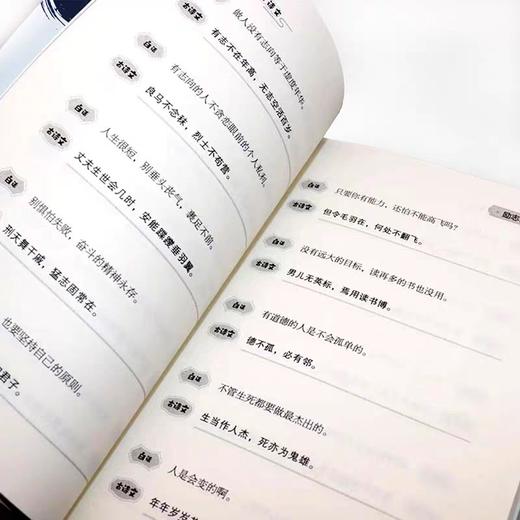 古语文
白话
做人没有志向等于虚度年华。
古语文
有志不在年高，无志空活百岁。
白话
有志向的人不贪恋眼前的个人私利。
古语文
良马不念秣，烈士不苟营。
白话
人生很短，别垂头丧气，裹足不前。
古语文
丈夫生世会几时，安能蹀躞垂羽翼。
白话
别惧怕失败，奋斗的精神永存。
古语文
刑天舞干戚，猛志固常在。
也要坚持自己的原则。
君子。
励志
白话
只要你有能力，还怕不能高飞吗？
古语文
但令毛羽在，何处不翻飞。
白话
没有远大的目标，读再多的书也没用。
古语文
男儿无英标，焉用读书博。
白话
有道德的人是不会孤单的。
古语文
德不孤，必有邻。
白话
不管生死都要做最杰出的。
古语文
生当作人杰，死亦为鬼雄。
白话
人是会变的啊。
古语文
年年岁岁